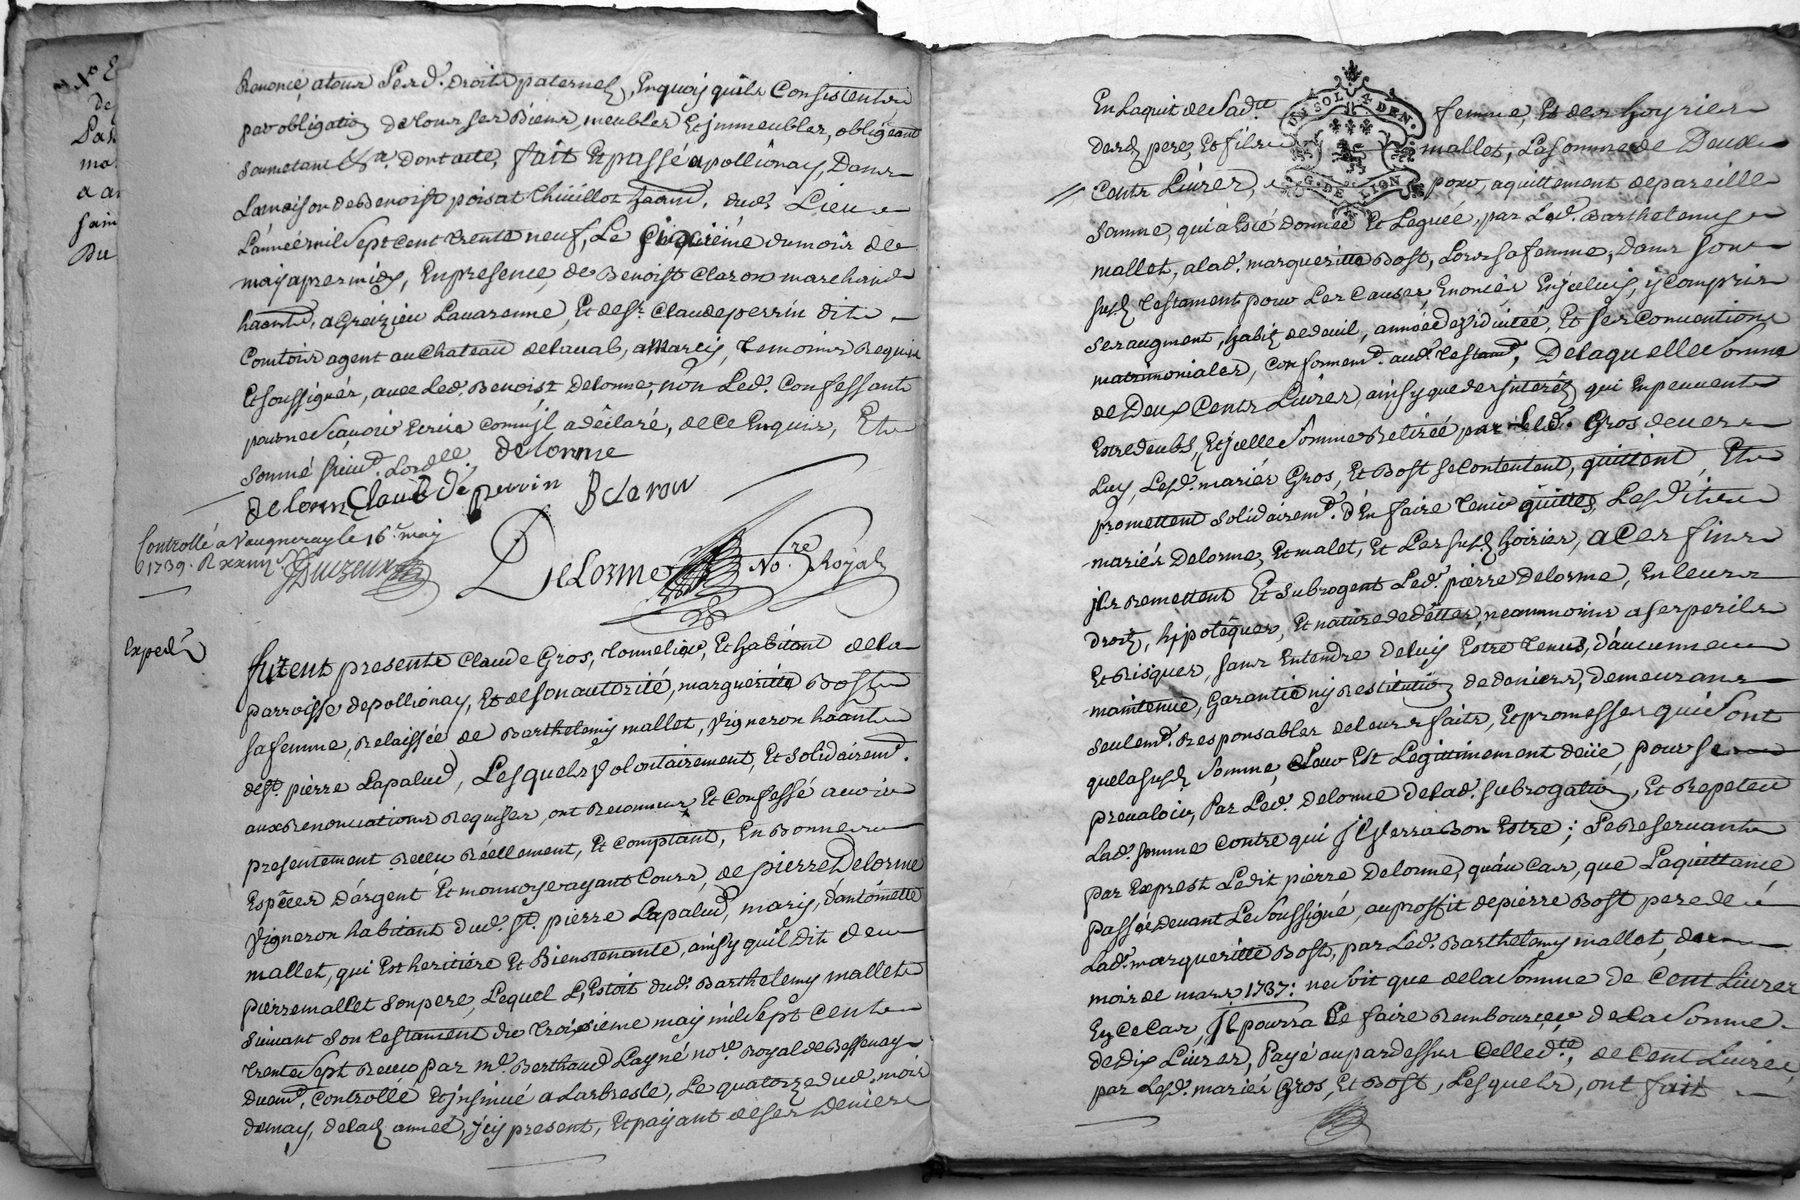 N.o E
de
La
mo
a a
sain
Du
Renoncé atous Sesd. droits paternels, Enquoy quils Consistent
par obligation detous ses Biens, meubles Et jmmeubles, obligeant
soumetant &a. dont acte, fait Et passé apollionay, Dans
Lamaison de benoist poisat Chuillot haant, dud. Lieu
Lannée mil Sept cent trente neuf, Le sixième du mois de
may apres midy, En presence, de Benoist Claron marchand
haant, a Greizieu Lavarenne, Et de Sr. Claude perrin dit
Comtois agent au Chateau delaval, a Marcy, temoins Requis
Et soussignés, avec Led. Benoist Delorme, non Led. Confessant
pour ne Scavoir Ecrire comm'jl a déclaré, de ce Enquis, Et
sommé suivt. Lordce. delorme
delorm Claude perrin B claron
Controllé à Vaugneray le 16e. may
1739. R
DeLorme No.re Royal
Exped.
furent presents Claude Gros, tonnelier, Et habitant dela
parroisse de pollionay, Et de son autorité, margueritte Bost
sa femme, Relaissée de Barthelemy mallet, Vigneron haant
de St. pierre Lapalud, Lesquels Volontairement, Et solidairemt.
aux Renonciations Requises, ont Reconnus Et Confessé avoir
presentement Receu Réellement, Et Comptant, En Bonnes
Espèces D'argent Et monnoye ayant Cours, de pierre Delorme
Vigneron habitant dud. St. pierre Lapalud, mary, d'antoinette
mallet, qui Est heritiére Et Bienstenante, ainsy quil dit de
pierre mallet son pere, Lequel L'Estoit dud. Barthelemy mallet
suivant son testament du troisieme may mil Sept Cent
trente Sept Receu par me. Berthaud Layné nore. Royal de Bessenay
duemt. Controllé Et jnsinué a Larbresle, Le quatorze dud. mois
de may, delad. année, jcy present, Et payant de ses deniers
UN SOL 4 DEN.
G. DE LION
En Laquit de Sadte. femme, Et des hoyries
desd. pere, Et fils mallet, La somme de Deux
Cents Livres, pour, aquittement de pareille
somme, qui à Esté donnée Et Leguée, par Led. Barthelemy
mallet, a lad. margueritte Bost, Lors sa femme, dans son
susd. testament pour Les Causes, Enoncées En jceluy, y Compris
ses augment, habit de deuil, année de viduitée, Et ses Conventions
matrimoniales, Conformemt. aud. testamt., De laquelle Somme
de Deux Cents Livres, ainsy que des jnterêts qui En peuvent
Estre deubs, Et jcelle Somme Retirée par Led. Gros devers
Luy, Lesd. mariés Gros, Et Bost se Contentent, quittent, Et
promettent solidairemt. d'En faire tenir quittes, Lesdits
mariés Delorme, Et malet, Et Les susd. hoiries, a Ces fins
jls Remettent Et subrogent Led. pierre Delorme, En leurs
droits, hypotêques, Et nature de dettes, neanmoins a ses perils
Et Risques, sans Entendre de luy Estre tenus, d'aucune
maintenue, Garantie ny Restitution de deniers, demeurans
seulemt. Responsables de leurs faits, Et promesses qui Sont
que la susd. Somme, Leur Est Legitimement deüe, pour se
prevaloir, Par Led. delorme de lad. subrogation, Et Repeter
Lad. somme contre qui jl Verra Bon Estre; Se Reservant
par Exprest Ledit pierre Delorme, qu'au Cas, que La quittance
passée devant Le Soussigné, au proffit de pierre Bost pere de
Lad. margueritte Bost, par Led. Barthelemy mallet, du
mois de mars 1737: ne Soit que de la Somme de Cent Livres
En ce Cas, jl pourra se faire Rembourcer de la Somme
de dix Livres, Payé au par dessus Celle dte. de Cent Livres,
par Lesd. mariés Gros, Et Bost, Lesquels, ont fait